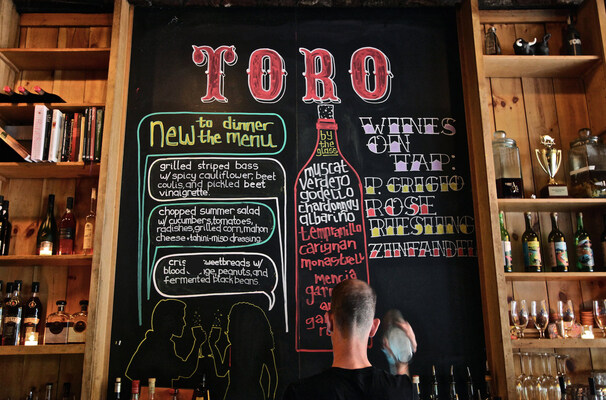 TORO
new to dinner
the menu
grilled striped bass
w/ spicy cauliflower, beet
coulis, and pickled beet
vinaigrette.
chopped summer salad
w/ cucumbers, tomatoes,
radishes, grilled corn, mahon
cheese + tahini-miso dressing.
w/
blood peanuts, and
fermented black beans.
by
the
glass
muscat
verdejo
godello
chardonnay
albariño
tempranillo
carignan
monastrell
mencia
and
WINES
ON
TAP:
P. GRIGIO
ROSE
RIESLING
ZINFANDEL